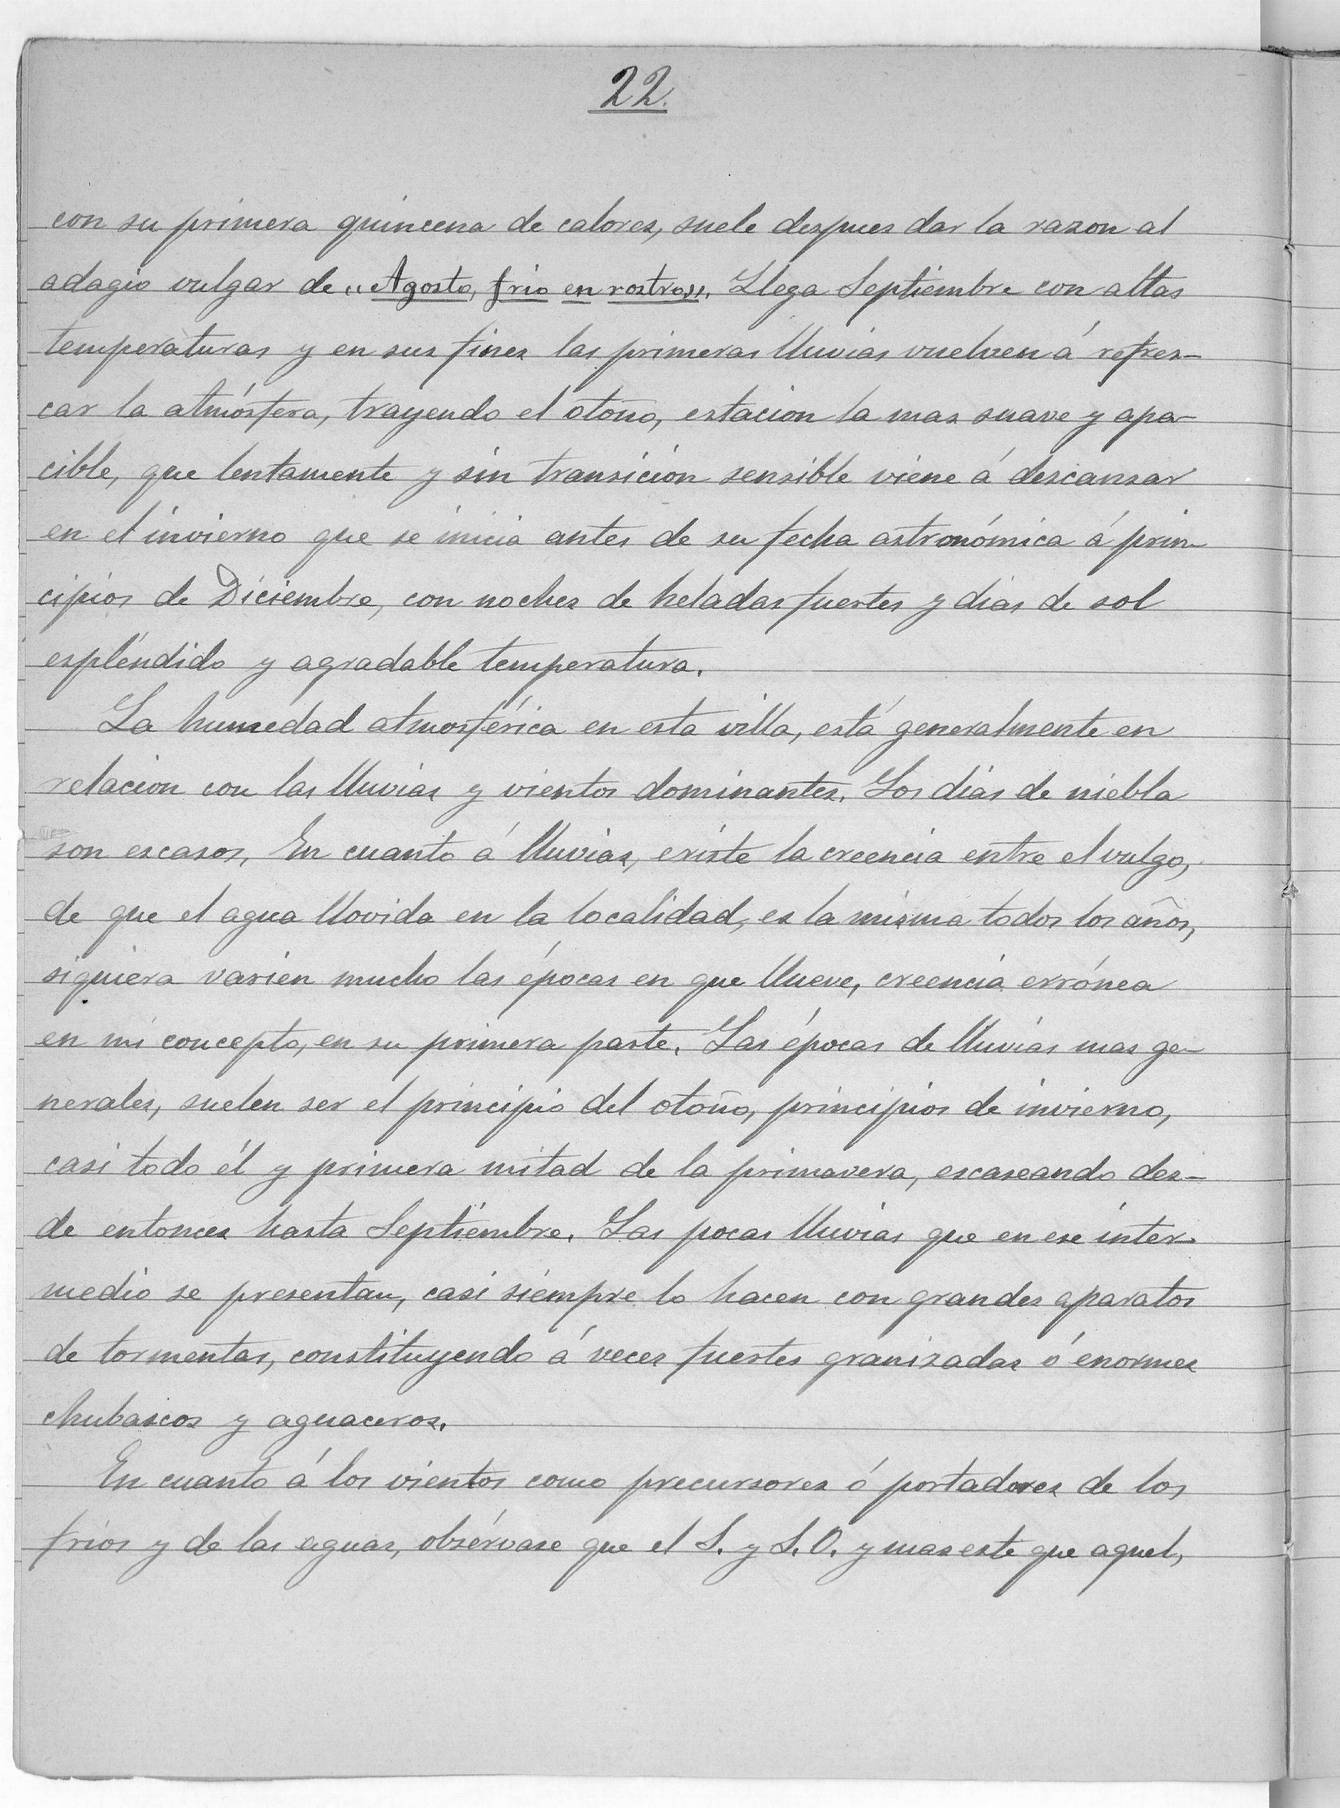 22.
con su primera quincena de calores, suele despues dar la razon al
adagio vulgar de „Agosto, frio en rostro„. Llega Septiembre con altas
temperaturas y en sus fines las primeras lluvias vuelven á refres-
car la atmósfera, trayendo el otoño, estacion la mas suave y apa-
cible, que lentamente y sin transicion sensible viene á descansar
en el invierno que se inicia antes de su fecha astronómica á prin-
cipios de Diciembre, con noches de heladas fuertes y dias de sol
espléndido y agradable temperatura.
La humedad atmosférica en esta villa, está generalmente en
relacion con las lluvias y vientos dominantes. Los dias de niebla
son escasos. En cuanto á lluvias, existe la creencia entre el vulgo,
de que el agua llovida en la localidad, es la misma todos los años,
siquiera varien mucho las épocas en que llueve, creencia errónea
en mi concepto, en su primera parte. Las épocas de lluvias mas ge-
nerales, suelen ser el principio del otoño, principios de invierno,
casi todo él y primera mitad de la primavera, escaseando des-
de entonces hasta Septiembre. Las pocas lluvias que en ese inter-
medio se presentan, casi siempre lo hacen con grandes aparatos
de tormentas, constituyendo á veces fuertes granizadas ó enormes
chubascos y aguaceros.
En cuanto á los vientos como precursores ó portadores de los
frios y de las aguas, obsérvase que el S. y S.O. y mas este que aquel,